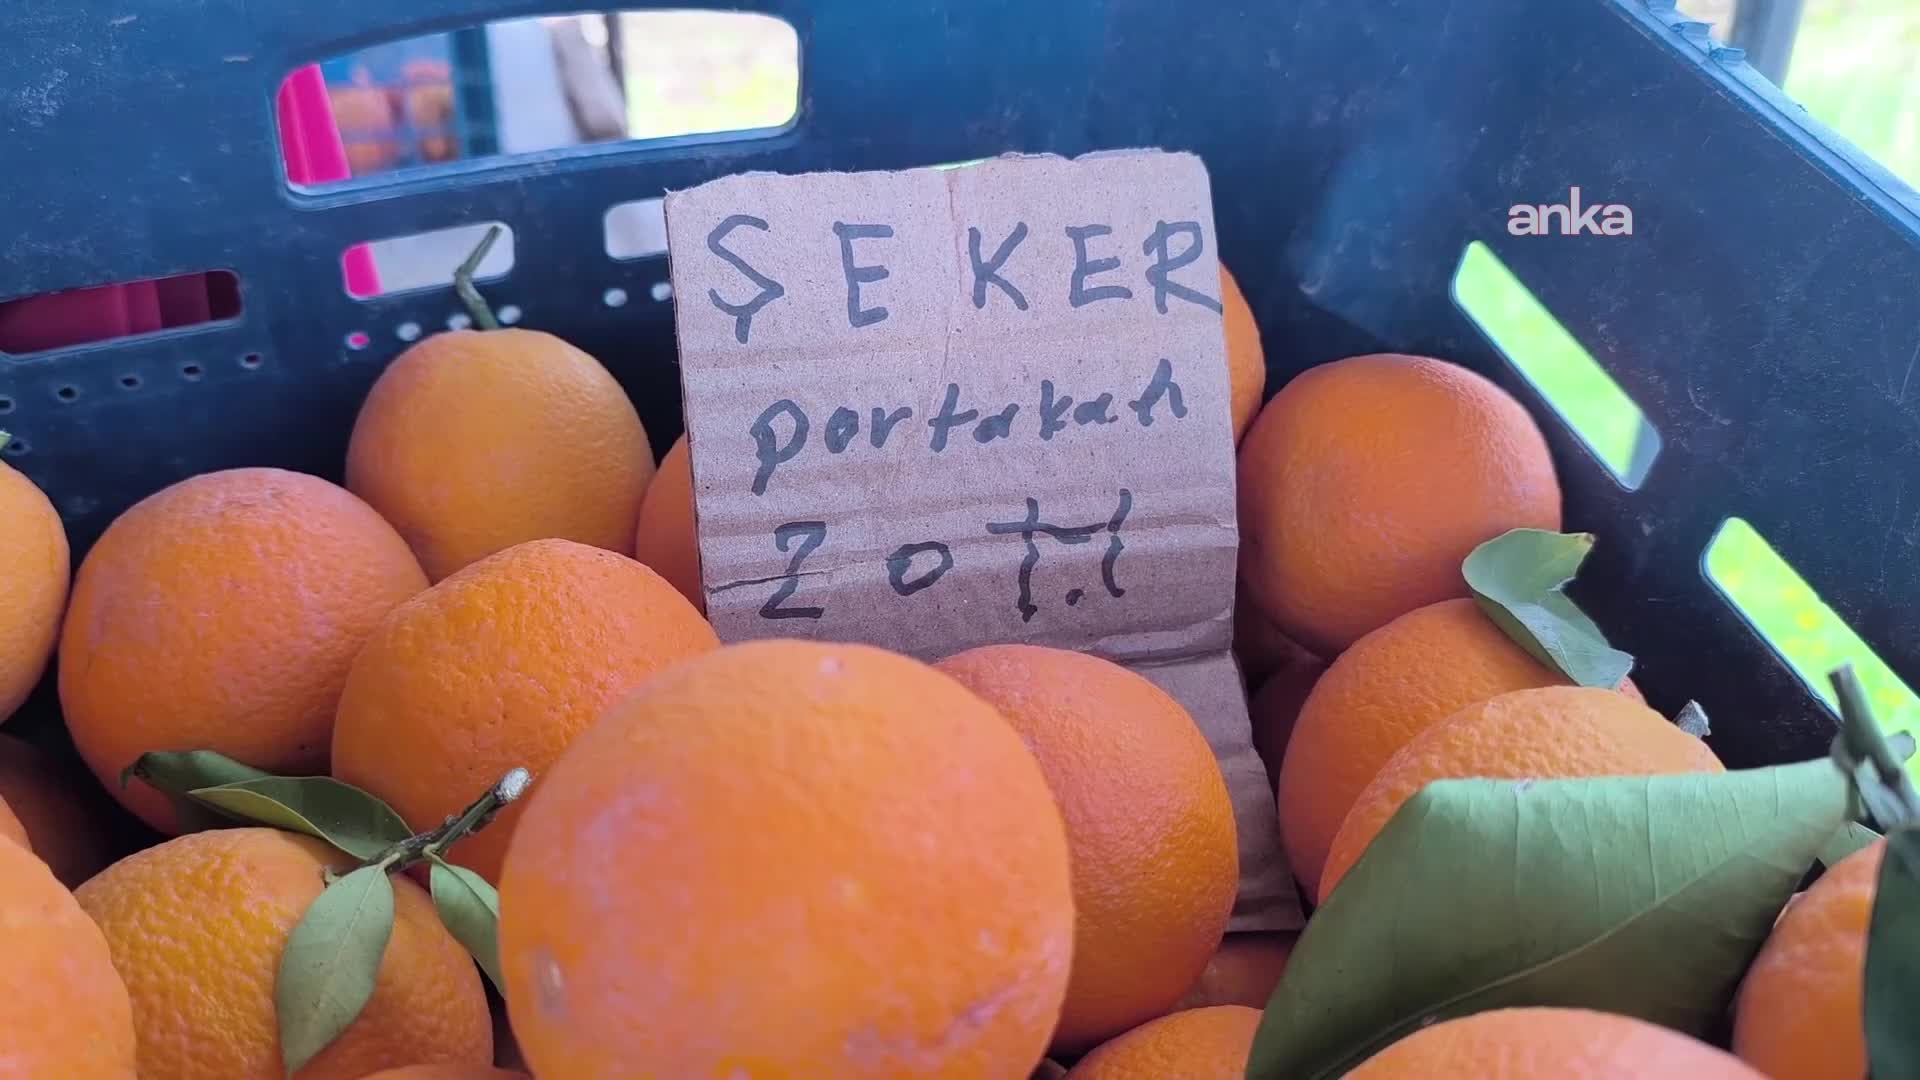 ŞEKER
portakalı
20 T.l
anka